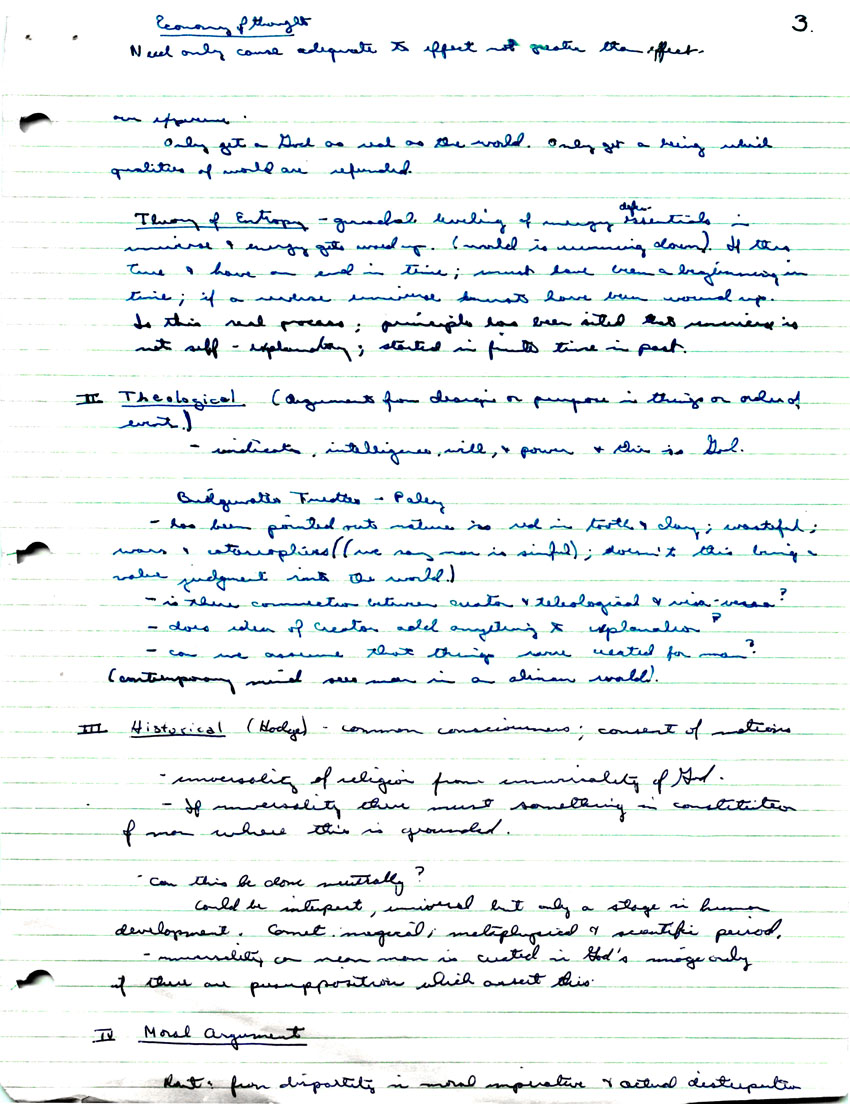 Economy of thought
3.
Need only cause adequate to effect not greater than effect.
our experience.
Only get a God as real as the world. Only get a being which
qualities of world are refunded.
Theory of Entropy - gradual leveling of energy essentials in
universe & energy gets used up. (world is running down). If this
true & have an end in time; must have been a beginning in
time; if a reverse universe must have been wound up.
Is this real process; principle has been sited that universe is
not self-explanatory; started in finite time in past.
II Theological (Argument from design or purpose in things or order of
event.)
- indicates, intelligence, will, & power & this is God.
Bridgewater Treatise - Paley
- has been pointed out nature is red in tooth & claw; wasteful;
wars & catastrophies ((we say man is sinful); doesn't this bring a
value judgment into the world.)
- is there connection between creator & teleological & visa-versa?
- does idea of Creator add anything to explanation?
- can we assume that things were created for man?
(contemporary mind sees man in a alien world).
III Historical (Hodge) - common consciousness; consent of nations
- universality of religion from universality of God.
- If universality there must something in constitution
of man where this is grounded.
- can this be done neutrally?
Could be interpret, universal but only a stage in human
development. Comet: magical; metaphysical & scientific period.
- universality can mean man is created in God's image only
if there are presupposition which assert this.
IV Moral Argument
Kant: from disparity in moral imperative & actual